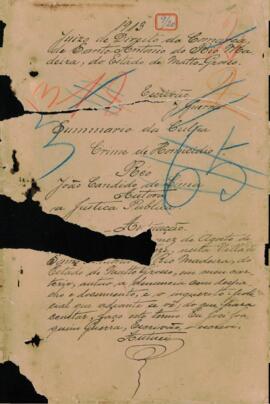 1913
Juizo de Direito da Comarca
de Santo Antonio do Rio Ma-
deira, do Estado de Matto-Grosso
Escrivão
J. Guerra
Summario da Culpa
Crime de Homicidio
Réo
João Candido de
Autora
a Justiça Publica
Autuação
mez de Agosto de
nesta
Rio Madeira, do
Estado de Matto Grosso, em meu car-
torio, autuo a denuncia com despa-
cho e documentos, e o inquerito poli-
cial que adiante se vê; do que para
constar, faço este termo. Eu José Joa-
quim Guerra, Escrivão, o escrevi.